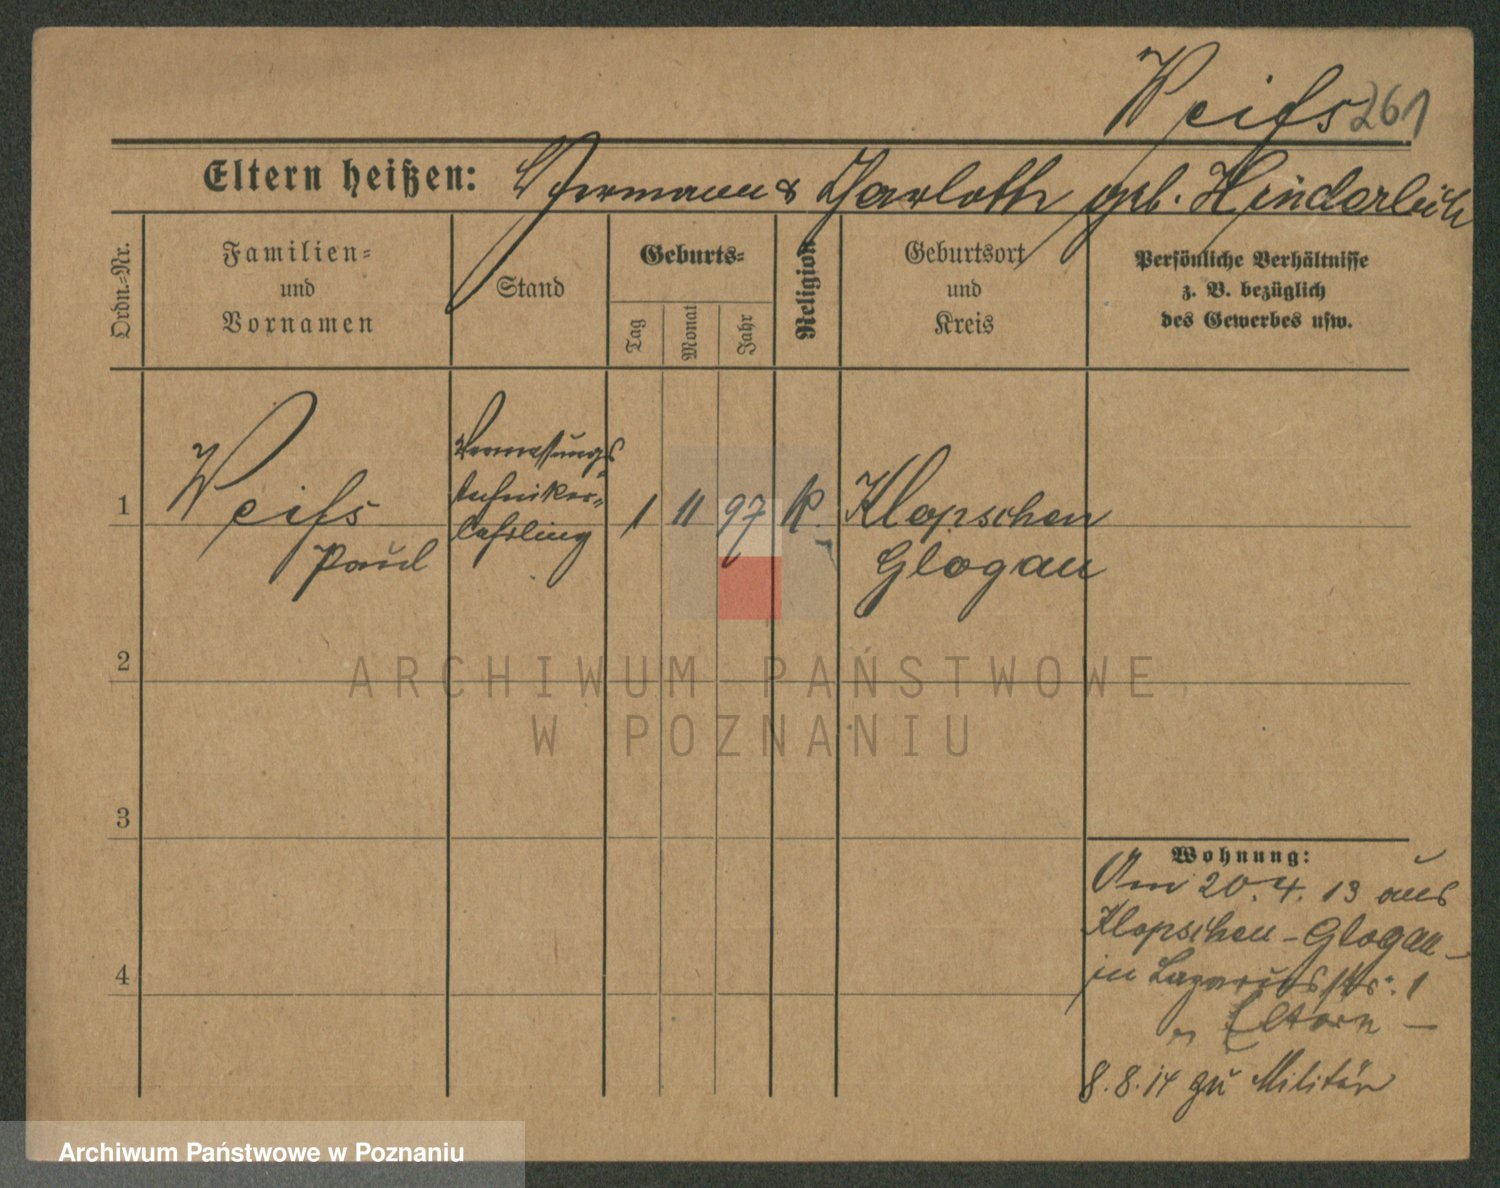 Weiß 261
Eltern heißen: Hermann & Charloth geb. Hinderlich
Ordn.-Nr.
Familien-
und
Vornamen
Stand
Geburts-
Tag
Monat
Jahr
Religion
Geburtsort
und
Kreis
Persönliche Verhältnisse
z. B. bezüglich
des Gewerbes usw.
1
Weiß
Paul
Vermessungs
techniker-
lehrling
1 11 97 K.
Klopschen
Glogau
2
3
4
Wohnung:
Am 20.4.13 aus
Klopschen-Glogau-
in Lazarusstr. 1
Eltern —
8.8.14 zu Militär
ARCHIWUM PAŃSTWOWE
W POZNANIU
Archiwum Państwowe w Poznaniu